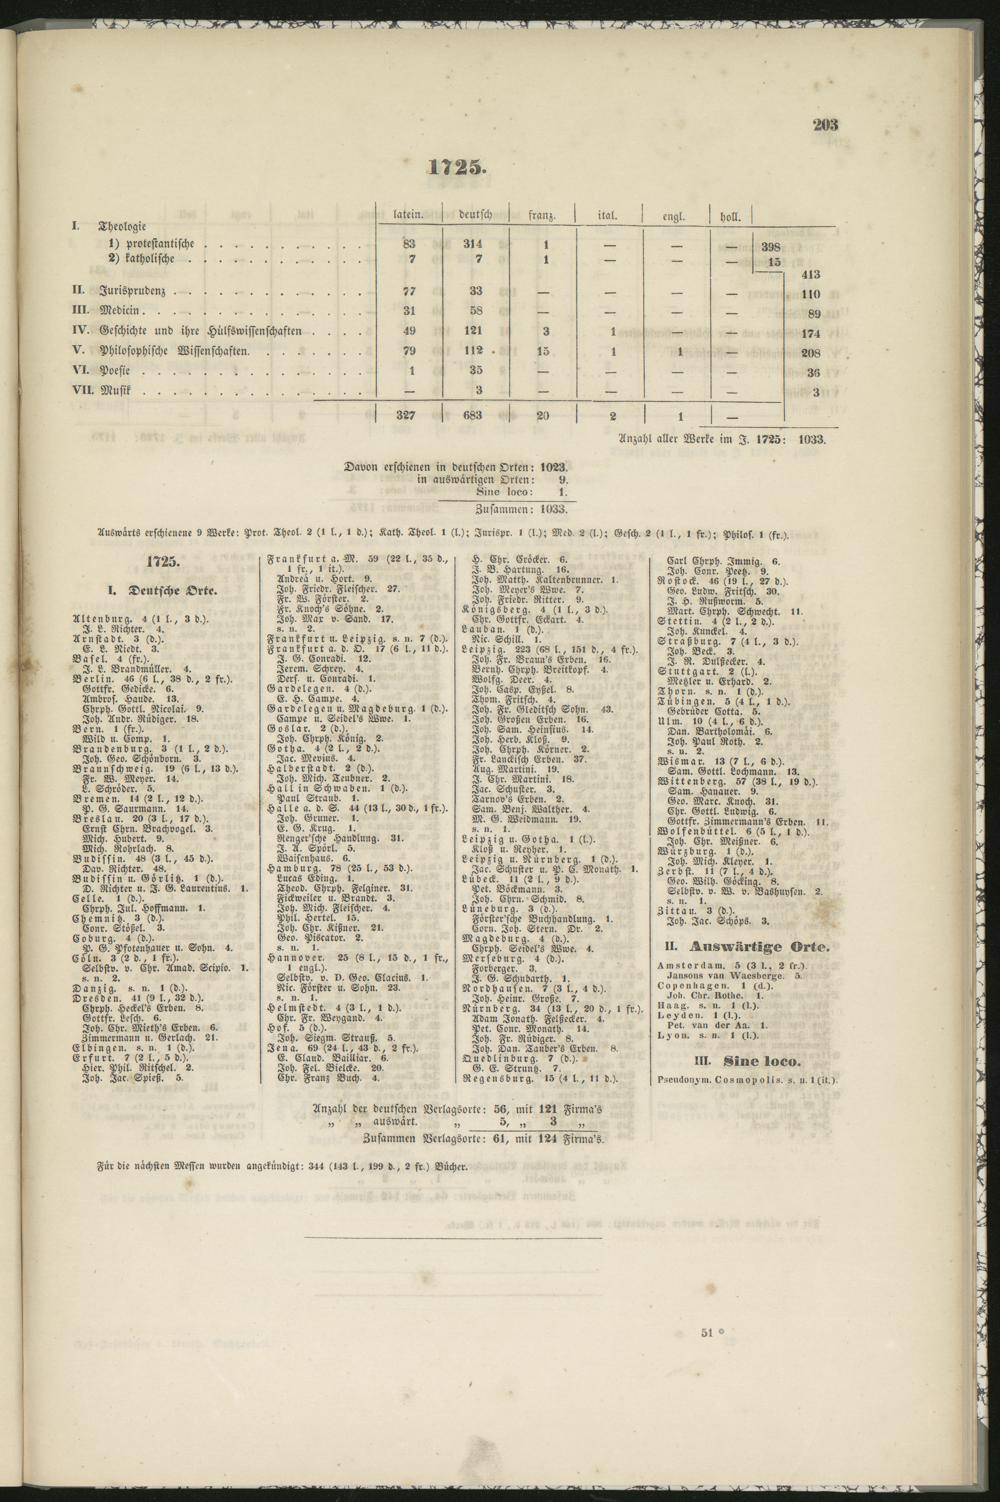 203
1725.
latein. deutsch franz. ital. engl. holl.
I. Theologie
1) protestantische . . . . . . . . . . . 83 314 1 — — — 398
2) katholische . . . . . . . . . . . . 7 7 1 — — — 15
413
II. Jurisprudenz . . . . . . . . . . . . . 77 33 — — — — 110
III. Medicin . . . . . . . . . . . . . . . 31 58 — — — — 89
IV. Geschichte und ihre Hülfswissenschaften . . . . 49 121 3 1 — — 174
V. Philosophische Wissenschaften. . . . . . . . 79 112 15 1 1 — 208
VI. Poesie . . . . . . . . . . . . . . . 1 35 — — — — 36
VII. Musik . . . . . . . . . . . . . . . — 3 — — — — 3
327 683 20 2 1 —
Anzahl aller Werke im J. 1725: 1033.
Davon erschienen in deutschen Orten: 1023.
in auswärtigen Orten: 9.
Sine loco: 1.
Zusammen: 1033.
Auswärts erschienene 9 Werke: Prot. Theol. 2 (1 l., 1 d.); Kath. Theol. 1 (l.); Jurispr. 1 (l.); Med. 2 (l.); Gesch. 2 (1 l., 1 fr.); Philos. 1 (fr.).
1725.
I. Deutsche Orte.
Altenburg. 4 (1 l., 3 d.).
J. L. Richter. 4.
Arnstadt. 3 (d.).
E. L. Niedt. 3.
Basel. 4 (fr.).
J. L. Brandmüller. 4.
Berlin. 46 (6 l., 38 d., 2 fr.).
Gottfr. Gedicke. 6.
Ambros. Haude. 13.
Chrph. Gottl. Nicolai. 9.
Joh. Andr. Rüdiger. 18.
Bern. 1 (fr.).
Wild u. Comp. 1.
Brandenburg. 3 (1 l., 2 d.).
Joh. Geo. Schöndorn. 3.
Braunschweig. 19 (6 l., 13 d.).
Fr. W. Meyer. 14.
L. Schröder. 5.
Bremen. 14 (2 l., 12 d.).
P. G. Saurmann. 14.
Breslau. 20 (3 l., 17 d.).
Ernst Chrn. Brachvogel. 3.
Mich. Hubert. 9.
Mich. Rohrlach. 8.
Budissin. 48 (3 l., 45 d.).
Dav. Richter. 48.
Budissin u. Görlitz. 1 (d.).
D. Richter u. J. G. Laurentius. 1.
Celle. 1 (d.).
Chrph. Jul. Hoffmann. 1.
Chemnitz. 3 (d.).
Conr. Stößel. 3.
Coburg. 4 (d.).
P. G. Pfotenhauer u. Sohn. 4.
Cöln. 3 (2 d., 1 fr.).
Selbstv. v. Chr. Amad. Scipio. 1.
s. n. 2.
Danzig. s. n. 1 (d.).
Dresden. 41 (9 l., 32 d.).
Chrph. Heckel's Erben. 8.
Gottfr. Lesch. 6.
Joh. Chr. Mieth's Erben. 6.
Zimmermann u. Gerlach. 21.
Elbingen. s. n. 1 (d.).
Erfurt. 7 (2 l., 5 d.).
Hier. Phil. Ritschel. 2.
Joh. Jac. Spieß. 5.
Frankfurt a. M. 59 (22 l., 35 d.,
1 fr., 1 it.).
Andreä u. Hort. 9.
Joh. Friedr. Fleischer. 27.
Fr. W. Förster. 2.
Fr. Knoch's Söhne. 2.
Joh. Max v. Sand. 17.
s. n. 2.
Frankfurt u. Leipzig. s. n. 7 (d.).
Frankfurt a. d. O. 17 (6 l., 11 d.).
J. G. Conradi. 12.
Jerem. Schrey. 4.
Ders. u. Conradi. 1.
Gardelegen. 4 (d.).
E. H. Campe. 4.
Gardelegen u. Magdeburg. 1 (d.).
Campe u. Seidel's Wwe. 1.
Goslar. 2 (d.).
Joh. Chrph. König. 2.
Gotha. 4 (2 l., 2 d.).
Jac. Mevius. 4.
Halberstadt. 2 (d.).
Joh. Mich. Teubner. 2.
Hall in Schwaben. 1 (d.).
Paul Straub. 1.
Halle a. d. S. 44 (13 l., 30 d., 1 fr.).
Joh. Gruner. 1.
E. G. Krug. 1.
Renger'sche Handlung. 31.
J. A. Spörl. 5.
Waisenhaus. 6.
Hamburg. 78 (25 l., 53 d.).
Lucas Eding. 1.
Theod. Chrph. Felginer. 31.
Fickweiler u. Brandt. 3.
Joh. Mich. Fleischer. 4.
Phil. Hertel. 15.
Joh. Chr. Kißner. 21.
Geo. Piscator. 2.
s. n. 1.
Hannover. 25 (8 l., 15 d., 1 fr.,
1 engl.).
Selbstv. v. D. Geo. Clacius. 1.
Nic. Förster u. Sohn. 23.
s. n. 1.
Helmstedt. 4 (3 l., 1 d.).
Chr. Fr. Weygand. 4.
Hof. 5 (d.).
Joh. Siegm. Strauß. 5.
Jena. 69 (24 l., 43 d., 2 fr.).
E. Claud. Bailliar. 6.
Joh. Fel. Bielcke. 20.
Chr. Franz Buch. 4.
H. Chr. Cröcker. 6.
J. B. Hartung. 16.
Joh. Matth. Kaltenbrunner. 1.
Joh. Meyer's Wwe. 7.
Joh. Friedr. Ritter. 9.
Königsberg. 4 (1 l., 3 d.).
Chr. Gottfr. Eckart. 4.
Lauban. 1 (d.).
Nic. Schill. 1.
Leipzig. 223 (68 l., 151 d., 4 fr.).
Joh. Fr. Braun's Erben. 16.
Bernh. Chrph. Breitkopf. 4.
Wolfg. Deer. 4.
Joh. Casp. Eyßel. 8.
Thom. Fritsch. 4.
Joh. Fr. Gleditsch Sohn. 43.
Joh. Großen Erben. 16.
Joh. Sam. Heinsius. 14.
Joh. Herb. Kloß. 9.
Joh. Chrph. Körner. 2.
Fr. Lanckisch Erben. 37.
Aug. Martini. 19.
J. Chr. Martini. 18.
Jac. Schuster. 3.
Tarnov's Erben. 2.
Sam. Benj. Walther. 4.
M. G. Weidmann. 19.
s. n. 1.
Leipzig u. Gotha. 1 (l.).
Kloß u. Reyher. 1.
Leipzig u. Nürnberg. 1 (d.).
Jac. Schuster u. P. C. Monath. 1.
Lübeck. 11 (2 l., 9 d.).
Pet. Böckmann. 3.
Joh. Chrn. Schmid. 8.
Lüneburg. 3 (d.).
Förster'sche Buchhandlung. 1.
Corn. Joh. Stern. Dr. 2.
Magdeburg. 4 (d.).
Chrph. Seidel's Wwe. 4.
Merseburg. 4 (d.).
Forberger. 3.
J. G. Schubarth. 1.
Nordhausen. 7 (3 l., 4 d.).
Joh. Heinr. Große. 7.
Nürnberg. 34 (13 l., 20 d., 1 fr.).
Adam Jonath. Felßecker. 4.
Pet. Conr. Monath. 14.
Joh. Fr. Rüdiger. 8.
Joh. Dan. Tauber's Erben. 8.
Quedlinburg. 7 (d.).
G. E. Struntz. 7.
Regensburg. 15 (4 l., 11 d.).
Carl Chrph. Immig. 6.
Joh. Conr. Peetz. 9.
Rostock. 46 (19 l., 27 d.).
Geo. Ludw. Fritsch. 30.
J. H. Rußworm. 5.
Mart. Chrph. Schwecht. 11.
Stettin. 4 (2 l., 2 d.).
Joh. Kunckel. 4.
Straßburg. 7 (4 l., 3 d.).
Joh. Beck. 3.
J. R. Dulßecker. 4.
Stuttgart. 2 (l.).
Metzler u. Erhard. 2.
Thorn. s. n. 1 (d.).
Tübingen. 5 (4 l., 1 d.).
Gebrüder Cotta. 5.
Ulm. 10 (4 l., 6 d.).
Dan. Bartholomäi. 6.
Joh. Paul Roth. 2.
s. n. 2.
Wismar. 13 (7 l., 6 d.).
Sam. Gottl. Lochmann. 13.
Wittenberg. 57 (38 l., 19 d.).
Sam. Hanauer. 9.
Geo. Marc. Knoch. 31.
Chr. Gottl. Ludwig. 6.
Gottfr. Zimmermann's Erben. 11.
Wolfenbüttel. 6 (5 l., 1 d.).
Joh. Chr. Meißner. 6.
Würzburg. 1 (d.).
Joh. Mich. Kleyer. 1.
Zerbst. 11 (7 l., 4 d.).
Geo. Wilh. Göcking. 8.
Selbstv. v. W. v. Bashuysen. 2.
s. n. 1.
Zittau. 3 (d.).
Joh. Jac. Schöps. 3.
II. Auswärtige Orte.
Amsterdam. 5 (3 l., 2 fr.).
Jansons van Waesberge. 5.
Copenhagen. 1 (d.).
Joh. Chr. Rothe. 1.
Haag. s. n. 1 (l.).
Leyden. 1 (l.).
Pet. van der Aa. 1.
Lyon. s. n. 1 (l.).
III. Sine loco.
Pseudonym. Cosmopolis. s. n. 1 (it.).
Anzahl der deutschen Verlagsorte: 56, mit 121 Firma's
„ „ auswärt. „ 5, „ 3 „
Zusammen Verlagsorte: 61, mit 124 Firma's.
Für die nächsten Messen wurden angekündigt: 344 (143 l., 199 d., 2 fr.) Bücher.
51 *